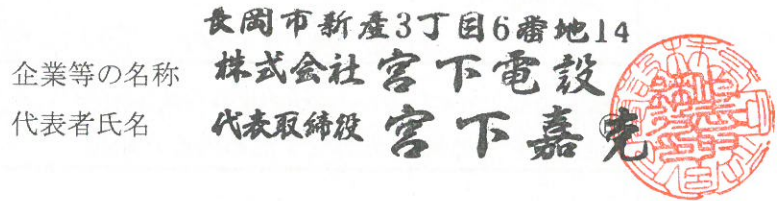 長岡市新産3丁目6番地14
企業等の名称 株式会社宮下電設
代表者氏名 代表取締役 宮下嘉光